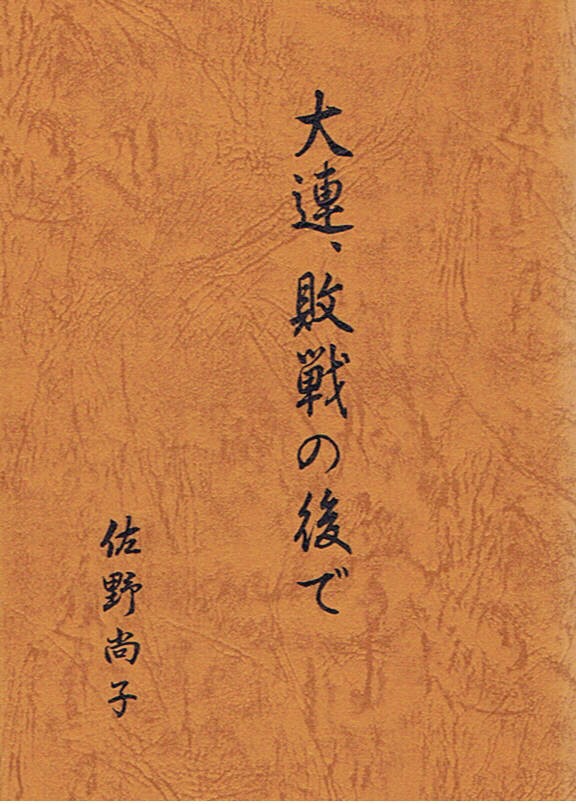 大連、敗戦の後で
佐野尚子